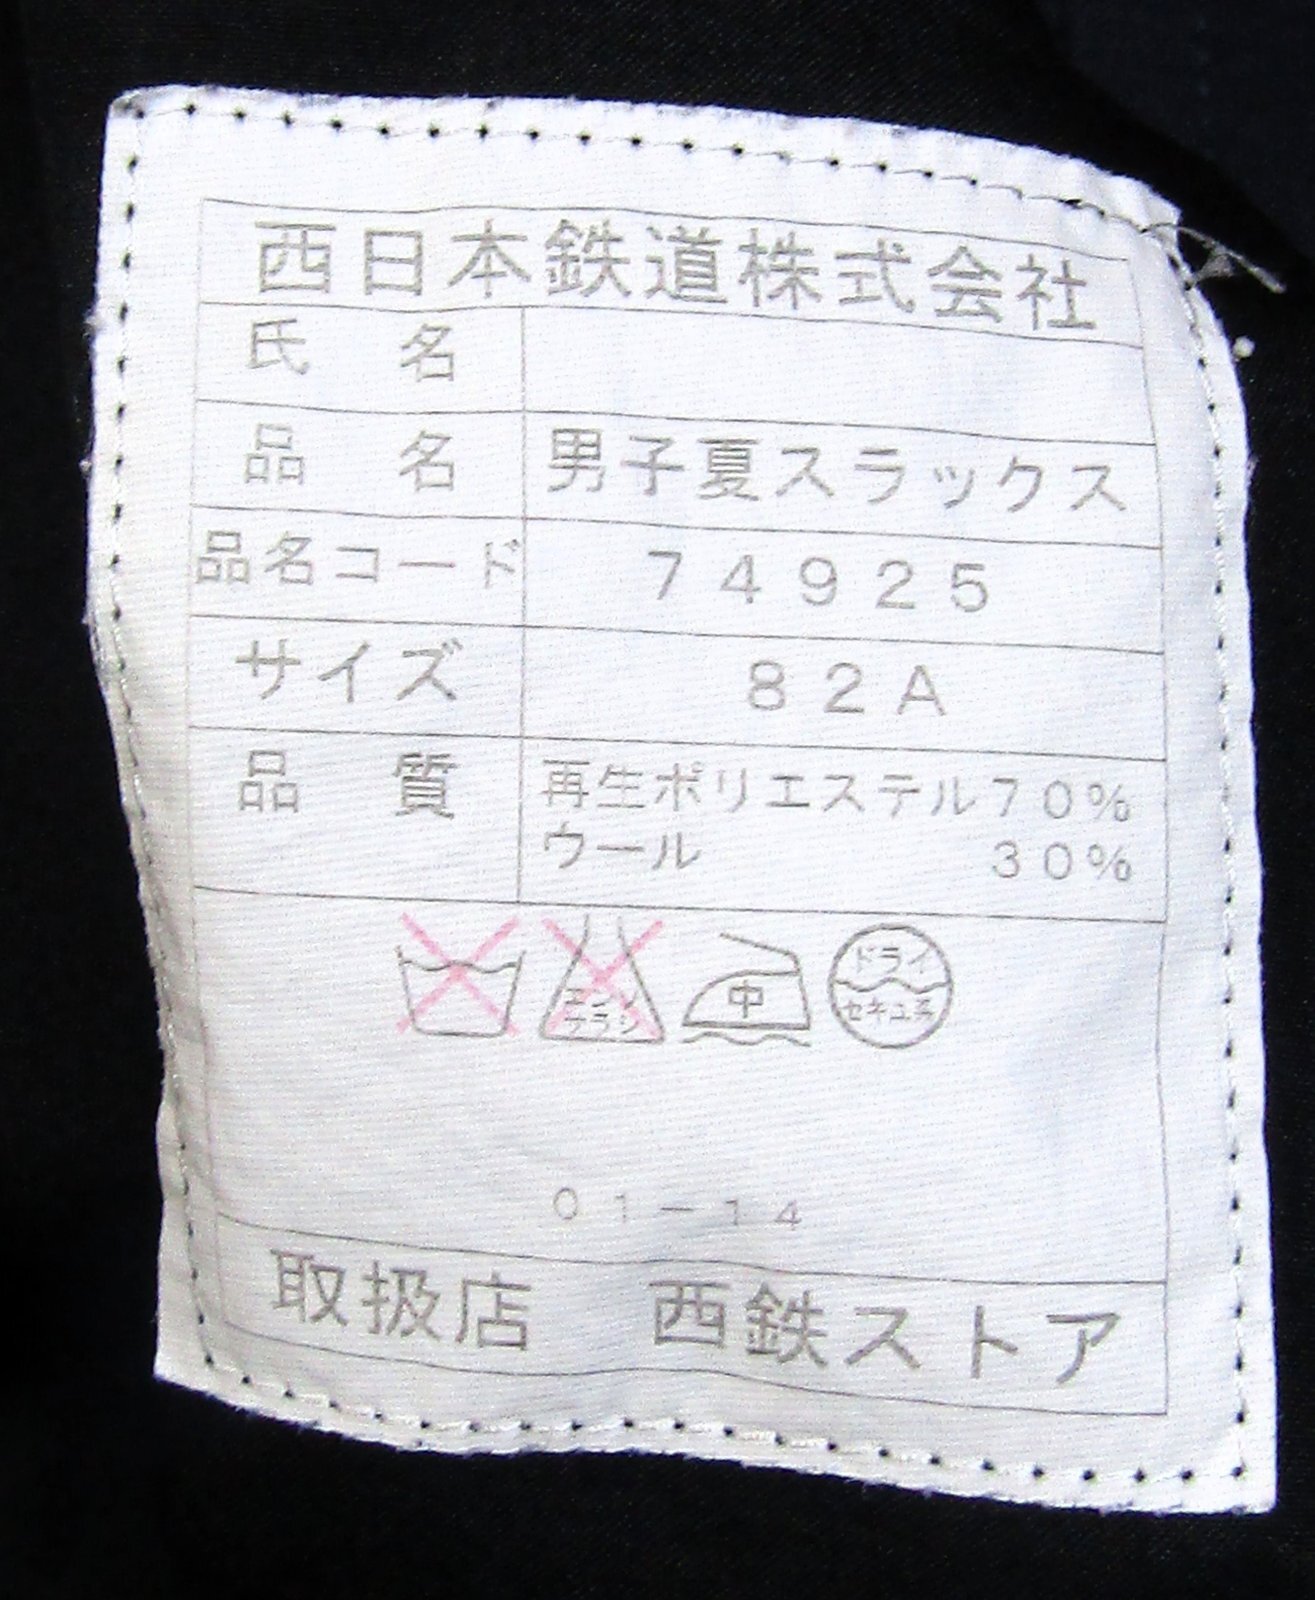 西日本鉄道株式会社
氏名
品名 男子夏スラックス
品名コード 74925
サイズ 82A
品質 再生ポリエステル70%
ウール 30%
エンソ
サラシ
中
ドライ
セキユ系
01-14
取扱店 西鉄ストア